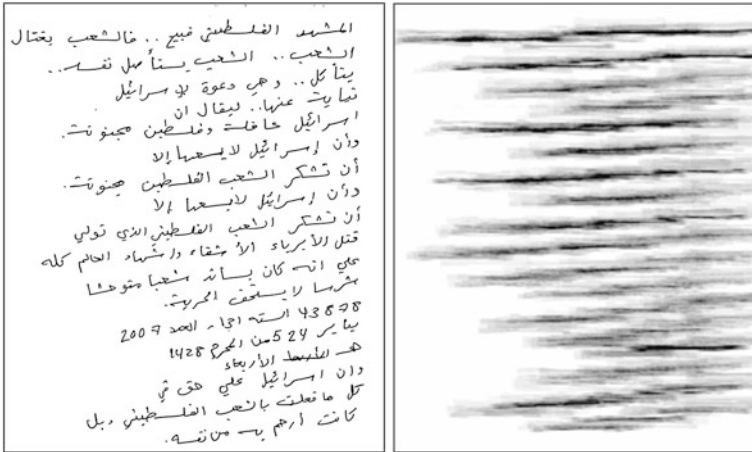 المشهد الفلسطيني قبيح .. فالشعب يغتال
الشعب .. الشعب يستأصل نفسه ..
يتآكل .. وهي دعوة لإسرائيل
نيابت عنها .. ليقال ان
اسرائيل عاقلة وفلسطين مجنونت.
وأن إسرائيل لا يسعها إلا
أن تشكر الشعب الفلسطين مجنونت.
وأن إسرائيل لا يسعها إلا
أن تشكر الشعب الفلسطيني الذي تولي
قتل الأبرياء الأشقاء وإشهاد العالم كله
علي انه كان يساند شعبا متوحشا
شرسا لا يستحق الحرية.
43878 السنه العدد 2007
يناير 24 5 من المحرم 1428
هـ الأربعاء
وان اسرائيل علي حق في
كل ما فعلت بالشعب الفلسطيني وبل
كانت أرحم به من نفسه.